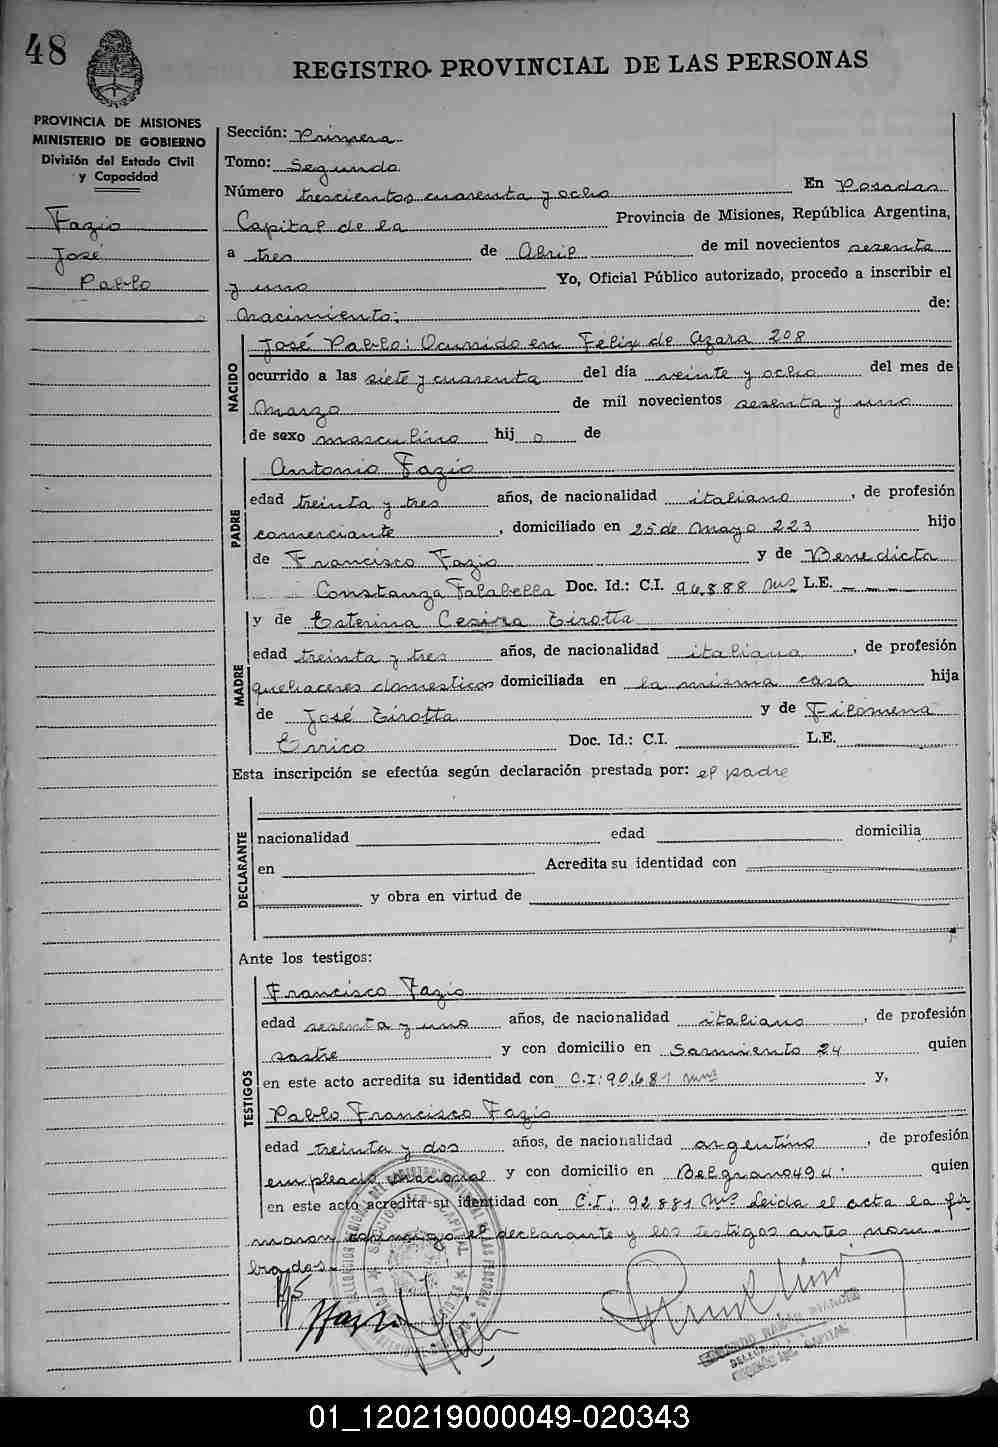 48
REGISTRO PROVINCIAL DE LAS PERSONAS
PROVINCIA DE MISIONES
MINISTERIO DE GOBIERNO
División del Estado Civil
y Capacidad
Fazio
José
Pablo
Sección: Primera
Tomo: Segundo
Número trescientos cuarenta y ocho En Posadas
Capital de la Provincia de Misiones, República Argentina,
a tres de Abril de mil novecientos sesenta
y uno Yo, Oficial Público autorizado, procedo a inscribir el
Nacimiento: de:
NACIDO
José Pablo: Ocurrido en Félix de Azara 208
ocurrido a las siete y cuarenta del día veinte y ocho del mes de
Marzo de mil novecientos sesenta y uno
de sexo masculino hij o de
PADRE
Antonio Fazio
edad treinta y tres años, de nacionalidad italiano, de profesión
comerciante, domiciliado en 25 de Mayo 223 hijo
de Francisco Fazio y de Benedicta
Constanza Falabella Doc. Id.: C.I. 94.888 Mns L.E. — — —
MADRE
y de Esterina Cesira Zirotta
edad treinta y tres años, de nacionalidad italiana, de profesión
quehaceres domesticos domiciliada en la misma casa hija
de José Zirotta y de Filomena
Errico Doc. Id.: C.I. L.E.
Esta inscripción se efectúa según declaración prestada por: el padre
DECLARANTE
nacionalidad edad domicilia
en Acredita su identidad con
y obra en virtud de
Ante los testigos:
TESTIGOS
Francisco Fazio
edad sesenta y uno años, de nacionalidad italiano, de profesión
sastre y con domicilio en Sarmiento 24 quien
en este acto acredita su identidad con C.I: 90.681 Mns y,
Pablo Francisco Fazio
edad treinta y dos años, de nacionalidad argentino, de profesión
empleado Nacional y con domicilio en Belgrano 494: quien
en este acto acredita su identidad con C.I: 92881 Mns Leida el acta la fir
maron conmigo el declarante y los testigos antes nom-
brados.
01_120219000049-020343